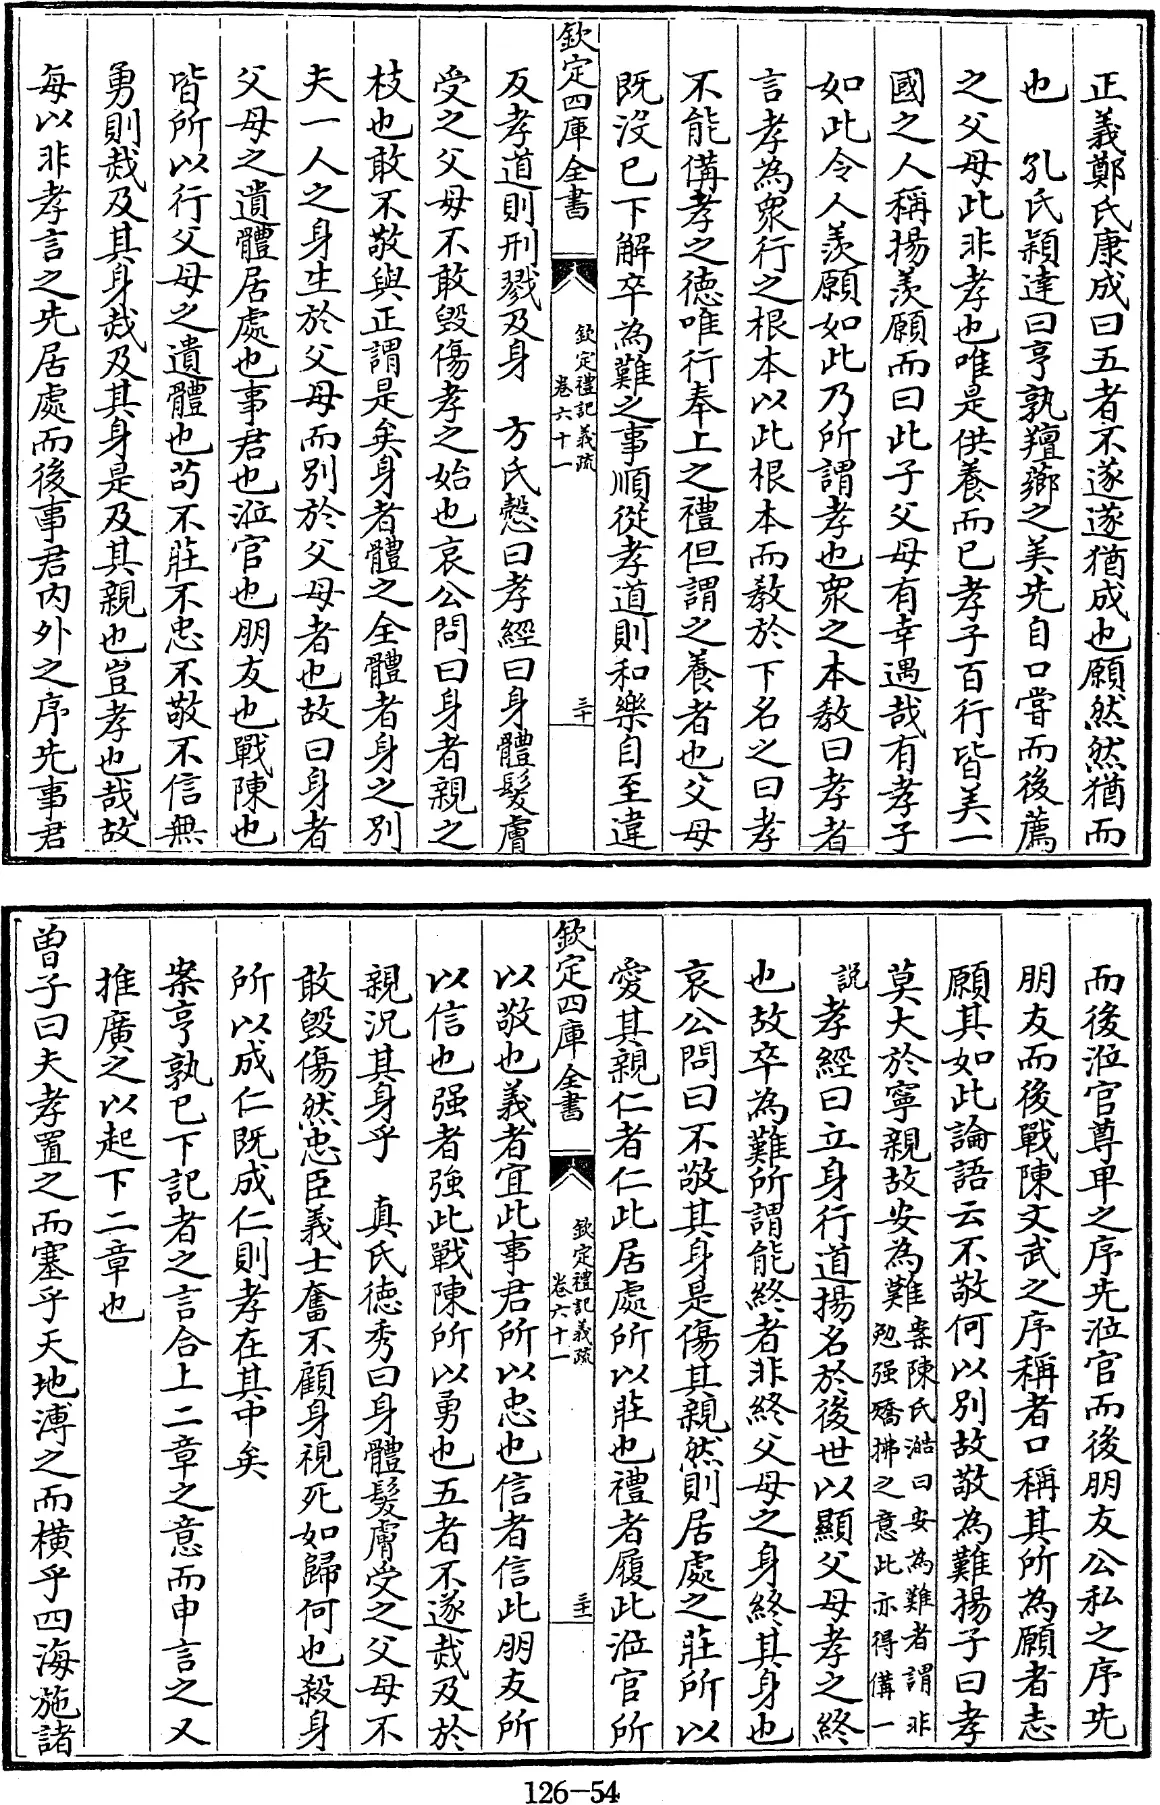 正義鄭氏康成曰五者不遂遂猶成也願然然猶而
也　孔氏穎達曰亨孰羶薌之美先自口嘗而後薦
之父母此非孝也唯是供養而已孝子百行皆美一
國之人稱揚羨願而曰此子父母有幸遇哉有孝子
如此令人羨願如此乃所謂孝也衆之本教曰孝者
言孝為衆行之根本以此根本而教於下名之曰孝
不能備孝之德唯行奉上之禮但謂之養者也父母
既沒已下解卒為難之事順從孝道則和樂自至違
欽定四庫全書
欽定禮記義疏
卷六十一
三十
反孝道則刑戮及身　方氏慤曰孝經曰身體髮膚
受之父母不敢毀傷孝之始也哀公問曰身者親之
枝也敢不敬與正謂是矣身者體之全體者身之別
夫一人之身生於父母而別於父母者也故曰身者
父母之遺體居處也事君也涖官也朋友也戰陳也
皆所以行父母之遺體也苟不莊不忠不敬不信無
勇則烖及其身烖及其身是及其親也豈孝也哉故
每以非孝言之先居處而後事君内外之序先事君
而後涖官尊卑之序先涖官而後朋友公私之序先
朋友而後戰陳文武之序稱者口稱其所為願者志
願其如此論語云不敬何以別故敬為難揚子曰孝
莫大於寧親故安為難案陳氏澔曰安為難者謂非
勉强矯拂之意此亦得備一
說　孝經曰立身行道揚名於後世以顯父母孝之終
也故卒為難所謂能終者非終父母之身終其身也
哀公問曰不敬其身是傷其親然則居處之莊所以
愛其親仁者仁此居處所以莊也禮者履此涖官所
欽定四庫全書
欽定禮記義疏
卷六十一
三十一
以敬也義者宜此事君所以忠也信者信此朋友所
以信也强者強此戰陳所以勇也五者不遂烖及於
親況其身乎　真氏德秀曰身體髮膚受之父母不
敢毀傷然忠臣義士奮不顧身視死如歸何也殺身
所以成仁既成仁則孝在其中矣
案亨孰已下記者之言合上二章之意而申言之又
推廣之以起下二章也
曾子曰夫孝置之而塞乎天地溥之而横乎四海施諸
126-54